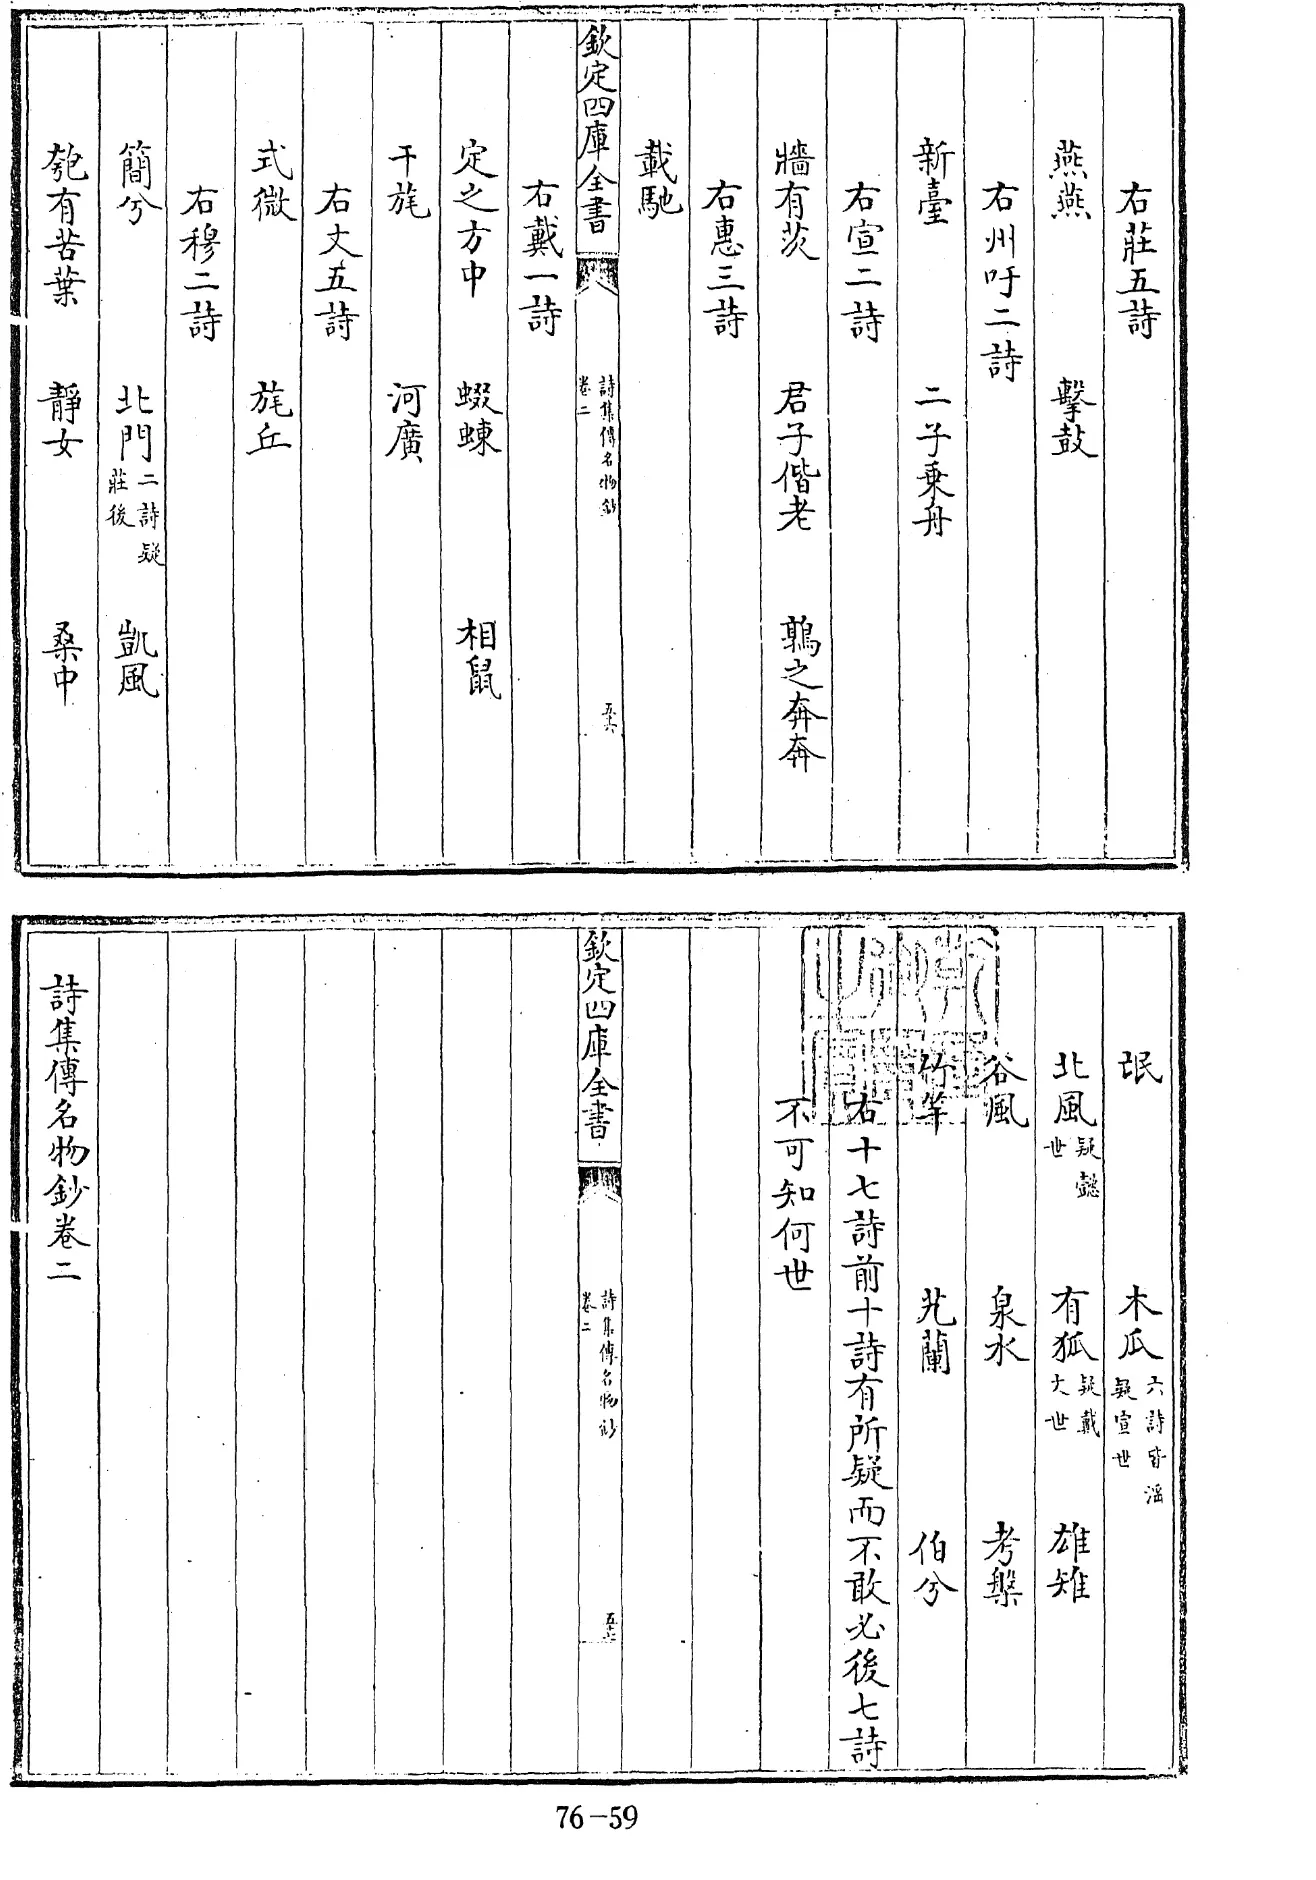 右莊五詩
燕燕 擊鼓
右州吁二詩
新臺 二子乗舟
右宣二詩
牆有茨 君子偕老 鶉之奔奔
右惠三詩
載馳
欽定四庫全書 詩集傳名物鈔 卷二 五十六
右戴一詩
定之方中 蝃蝀 相鼠
干旄 河廣
右文五詩
式微 旄丘
右穆二詩
簡兮 北門二詩疑莊後 凱風
匏有苦葉 靜女 桑中
氓 木瓜六詩皆滛疑宣世
北風疑懿世 有狐疑戴文世 雄雉
谷風 泉水 考槃
竹竿 芄蘭 伯兮
右十七詩前十詩有所疑而不敢必後七詩
不可知何世
欽定四庫全書 詩集傳名物鈔 卷二 五十七
詩集傳名物鈔卷二
76-59